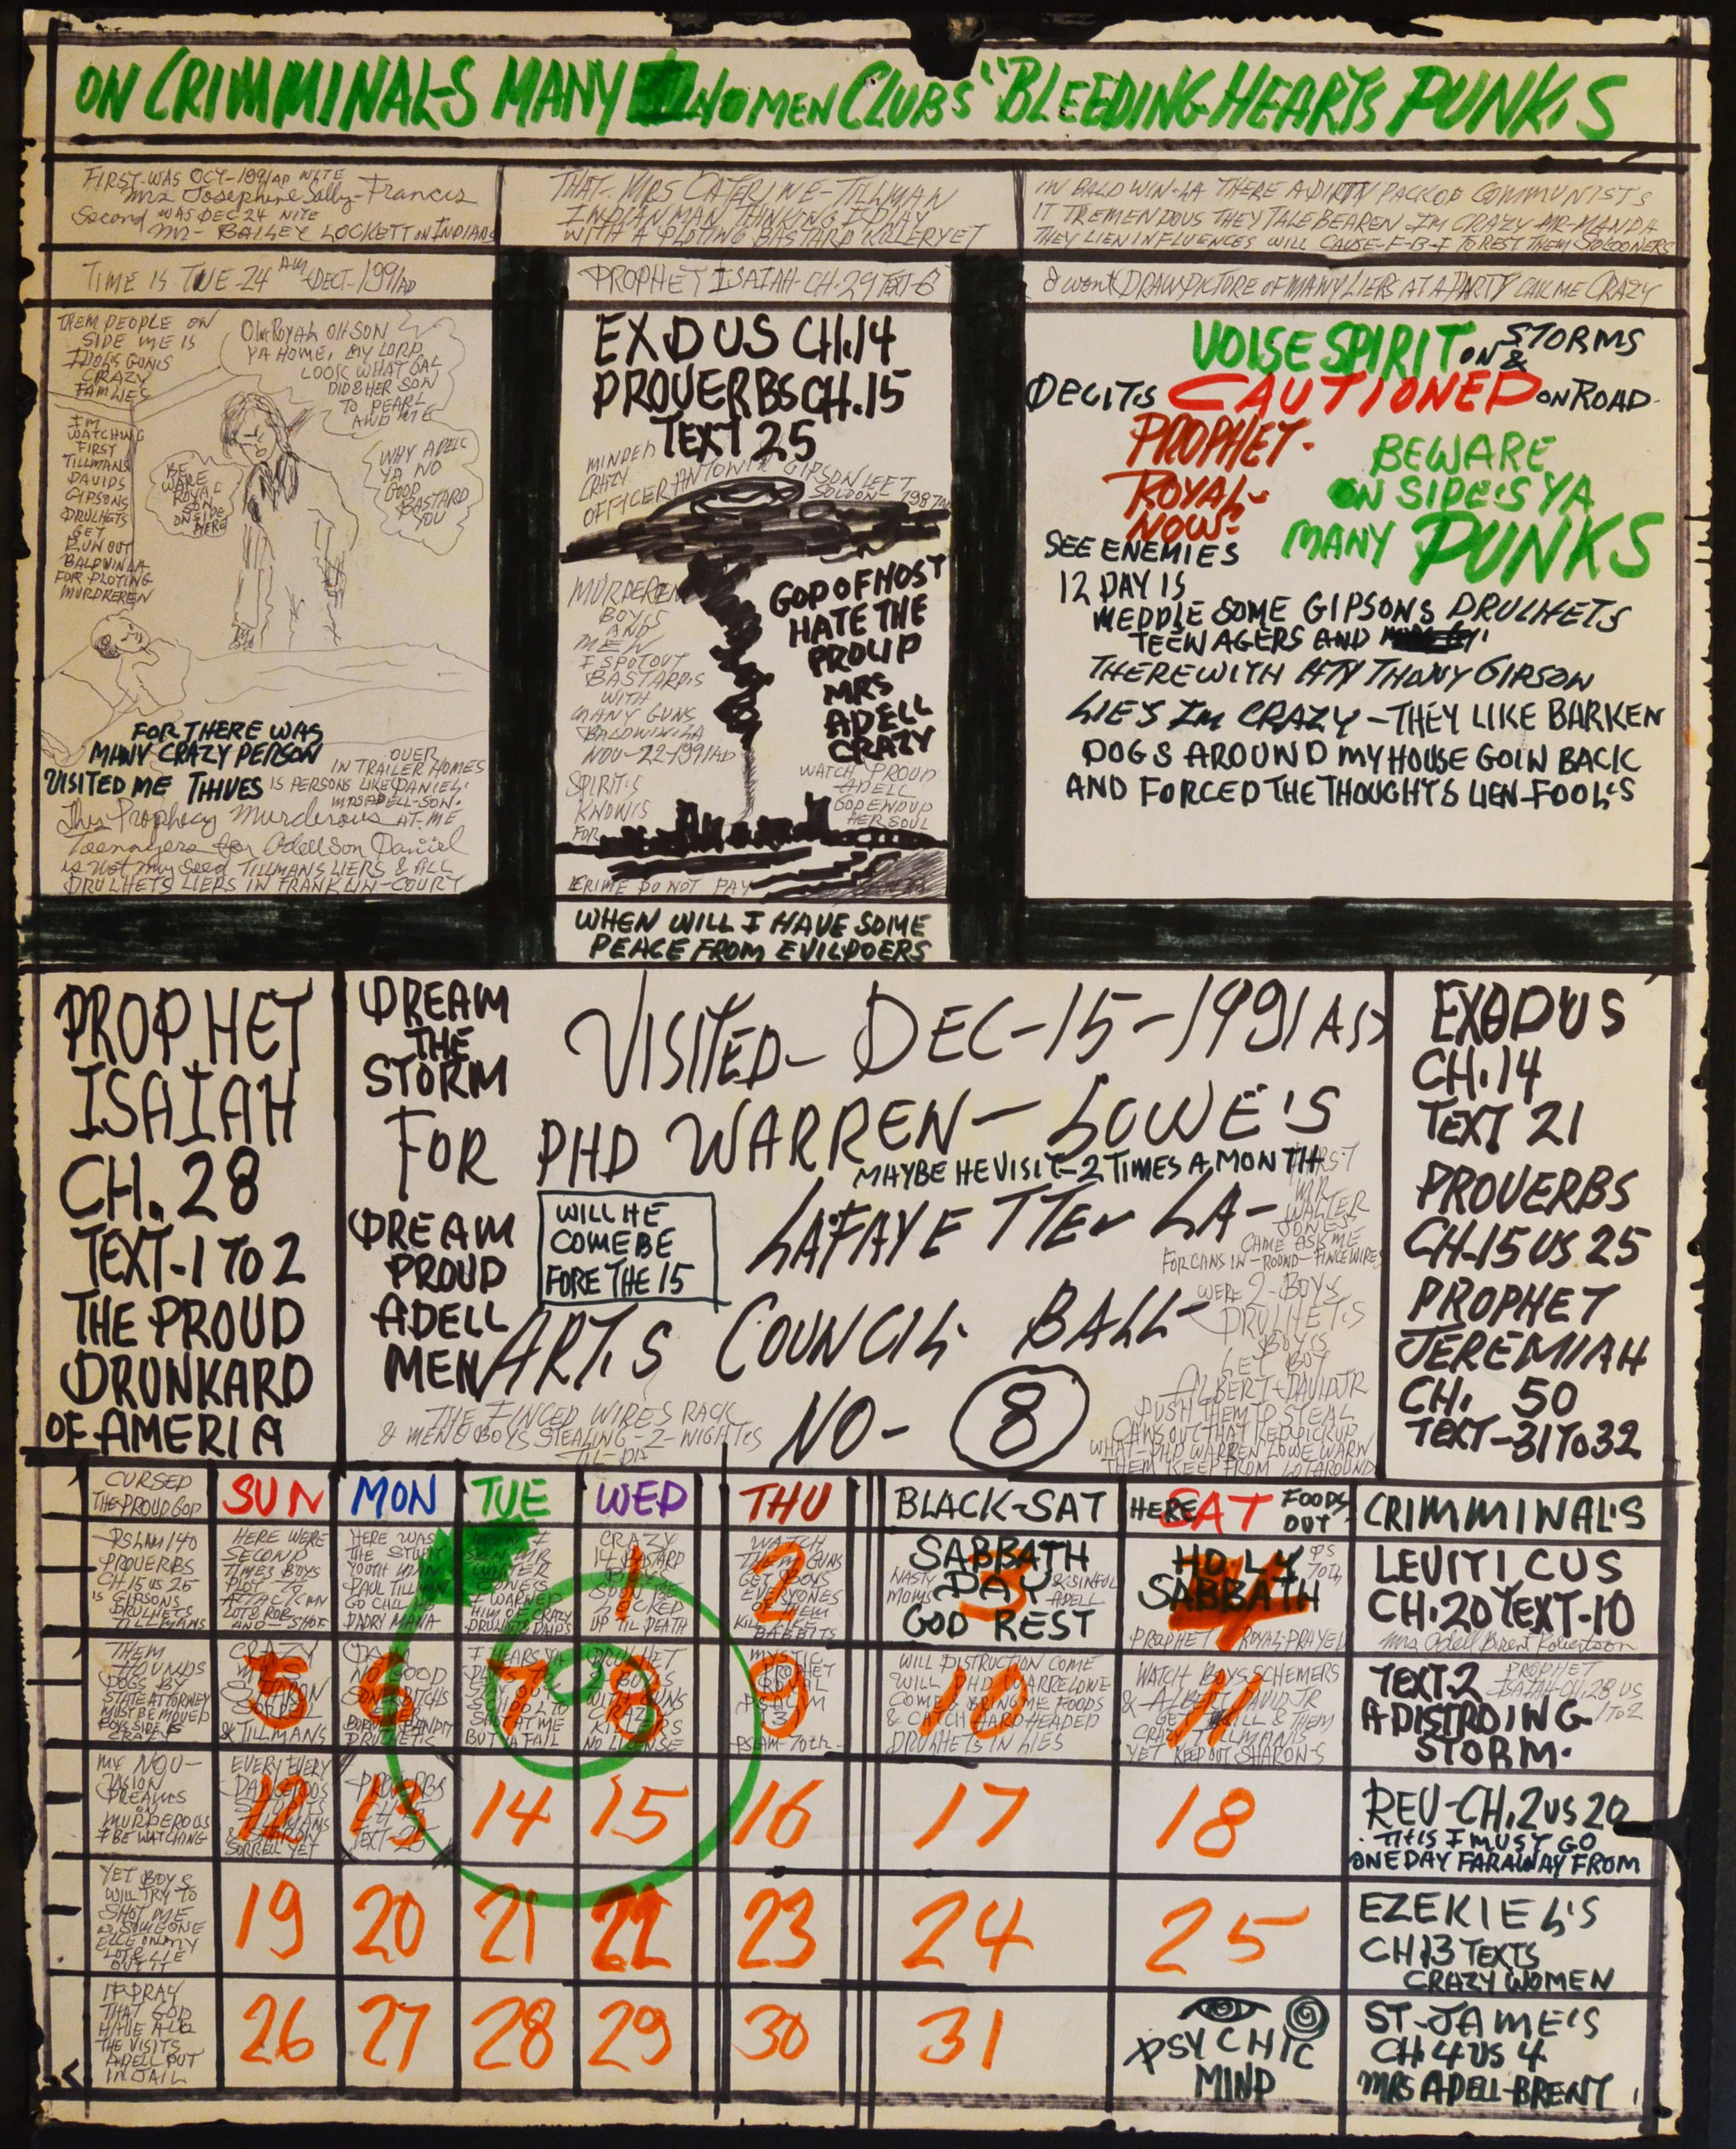 ON CRIMMINALS MANY NOMEN CLUBS "BLEEDING HEARTS PUNKS
FIRST WAS OCT-1991AD NITE
Mrs Josephine Sally-Francis
Second WAS DEC 24 NITE
Mr- BAILEY LOCKETT ON INDIANS
THAT- MRS CATERINE-TILLMAN
INDIAN MAN THINKING I PLAY
WITH A PLOTING BASTARD KILLER YET
IN BALDWIN-LA THERE A DIRTY PACK OF COMMUNISTS
IT TREMENDOUS THEY TALE BEAREN IM CRAZY MR-MANDA
THEY LIEN INFLUENCES WILL CAUSE-F-B-I TO REST THEM SOLOONERS
TIME IS TUE-24 AM DECT-1991AD
PROPHET ISAIAH-CH-29 TEXT-6
I want DRAW PICTURE OF MANY LIERS AT A PARTY CALL ME CRAZY
THEM PEOPLE ON
SIDE ME IS
IDOLIS GUNIS
CRAZY
FAMLIES
IM
WATCHING
FIRST
TILLMANS
DAVIDS
GIPSONS
DRULHETS
GET
RUN OUT
BALDWIN LA
FOR PLOTING
MURDREREN
OL ROYAL OH SON
YA HOME, MY LORD
LOOK WHAT GAL
DID & HER SON
TO PEARL
AND ME
BE
WARE
ROYAL
SON
ON SIDE
HERE
WHY ADELL
YA NO
GOOD
BASTARD
YOU
FOR THERE WAS
MANY CRAZY PERSON
VISITED ME THIVES IS PERSONS LIKE DANIEL
OVER
IN TRAILER HOMES
MRS ADELL-SON.
This Prophecy Murderous AT ME
Teenagers for Odell Son Daniel
is not my seed TILLMANS LIERS & ALL
DRULHETS LIERS IN FRANKLIN-COURT
EXDUS CH.14
PROUERBS CH.15
TEXT 25
MINDED
CRAZY
OFFICER ANTOWIN GIPSON LEFT
SOLDON 1987AD
MURDEREN
BOYS
AND
MEN
I SPOT OUT
BASTARDS
WITH
MANY GUNS
BALDWIN LA
NOV-22-1991AD
SPIRITIS
KNOWIS
FOR
GOD OF HOST
HATE THE
PROUD
MRS
ADELL
CRAZY
WATCH PROUD
ADELL
GOD END UP
HER SOUL
CRIME DO NOT PAY
WHEN WILL I HAVE SOME
PEACE FROM EVILDOERS
VOISE SPIRIT ON STORMS
&
DECITS CAUTIONED ON ROAD
PROPHET-
ROYAL-
NOW-
BEWARE
ON SIDES YA
MANY PUNKS
SEE ENEMIES
12 DAY IS
MEDDLE SOME GIPSONS DRULHETS
TEENAGERS AND
THERE WITH ANTHONY GIPSON
LIES IM CRAZY-THEY LIKE BARKEN
DOGS AROUND MY HOUSE GOIN BACK
AND FORCED THE THOUGHTS LIEN-FOOL'S
PROPHET
ISAIAH
CH.28
TEXT-1 TO 2
THE PROUD
DRUNKARD
OF AMERIA
DREAM
THE
STORM
VISITED- DEC-15-1991AD
FOR PHD WARREN-LOWE'S
MAYBE HE VISIT-2 TIMES A MONTH
DREAM
PROUD
ADELL
MEN
WILL HE
COME BE
FORE THE 15
LAFAYETTE LA-
ARTS COUNCIL BALL-
NO- 8
FIRST
MR
WALTER
JONES
CAME ASK ME
FOR CANS IN-ROUND-FINCE WIRES
WERE 2-BOYS
DRULHETS
BOYS
LET BOY
ALBERT-DAVID JR
PUSH THEM TO STEAL
CANS OUT THAT RED PICKUP
WHAT-PHD WARREN LOWE WARN
THEM KEEP FROM LOT AROUND
THE FINCED WIRES RACK
& MEN & BOYS STEALING-2-NIGHTS
EXODUS
CH.14
TEXT 21
PROUERBS
CH-15 US 25
PROPHET
JEREMIAH
CH. 50
TEXT-31 TO 32
CURSED
THE PROUD GOD
SUN MON TUE WED THU BLACK-SAT HERE SAT FOODS OUT CRIMMINAL'S
PSLAM 140
PROVERBS
CH 15 US 25
IS GIPSONS
DRULHETS
TILLMANS
HERE WERE
SECOND
TIMES BOYS
PLOT
ATTACK CAN
LOT & ROB
AND-SHOT
HERE WAS
THE STUPIT
YOUTH MAN
PAUL TILLMAN
GO CALL HIS
DADRY MANA
I WARNED
HIM OF CRAZY
DRULHETS
CRAZY
14 BASTARD
UP TIL DEATH
1
WATCH
THEM GUNS
GET BOYS
EVERYONES
OF THEM
2
SABBATH
DAY
GOD REST
NASTY
MOMS
& SINFUL
ADELL
3
HOLY
SABBATH
PS
70th
PROPHET ROYAL-PRAYED
4
LEVITICUS
CH.20 TEXT-10
Mrs Odell Brent Robertson
THEM
HOUNDS
DOGS BY
STATE ATTORNEY
MUST BE MOVED
BOYS SIDE IS
CRAZY
5
& TILLMANS
6
NO GOOD
7
I HEARS YA
SHOT AT ME
BUT YA FAIL
8
DRULHET
BOYS
WITH GUNS
CRAZY
KILLERS
NO LICENSE
9
MYSTIC
PROPHET
ROYAL
PSALM
3
PSLAM-70th
10
WILL DISTRUCTION COME
WILL PHD WARRE LOWE
COME & BRING ME FOODS
& CATCH HARD HEADED
DRULHETS IN LIES
11
WATCH BOYS SCHEMERS
& ALBERT DAVID JR
GET KILL & THEM
CRAZY TILLMANIS
YET KEEP OUT SHARON-S
TEXT 2 PROPHET
ISAIAH-CH.28 US
1 TO 2
A DISTROING
STORM.
MY NOU-
ISION
DREAMS
ON
MURDEROUS
I BE WATCHING
12
EVERY EVERY
DANGEROUS
TILLMANS
& SHARON
SORRELL YET
13
PROVERBS
CH-15
TEXT-25
14 15 16 17 18
REU-CH.2 US 20
THIS I MUST GO
ONE DAY FARAWAY FROM
YET BOYS
WILL TRY TO
SHOT ME
OR SOMEONE
ELCE ON MY
LOT & LIE
OUT IT
19 20 21 22 23 24 25
EZEKIEL'S
CH13 TEXTS
CRAZY WOMEN
I PRAY
THAT GOD
HAVE ALL
THE VISITS
ADELL PUT
IN JAIL
26 27 28 29 30 31
PSYCHIC
MIND
ST-JAME'S
CH 4 US 4
MRS ADELL-BRENT